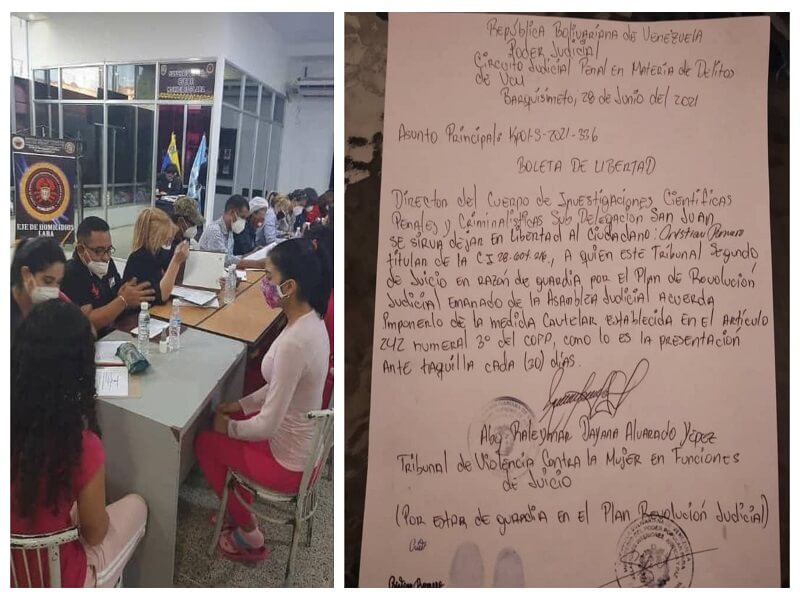 EJE DE HOMICIDIOS
LARA
República Bolivariana de Venezuela
Poder Judicial
Circuito Judicial Penal en Materia de Delitos
de VCM
Barquisimeto, 28 de Junio del 2021
Asunto Principal: KP01-S-2021-336
BOLETA DE LIBERTAD
Director del Cuerpo de Investigaciones Científicas
Penales y Criminalísticas Sub Delegación San Juan
se sirva dejar en libertad al ciudadano: Christian Romero
titular de la C.I., a quien este Tribunal Segundo
de Juicio en razón de guardia por el Plan de Revolución
Judicial emanado de la Asamblea Judicial acuerda
Imponerlo de la medida Cautelar establecida en el artículo
242 numeral 3° del COPP, como lo es la presentación
ante taquilla cada (30) días.
Abg Raleymar Dayana Alvarado Yépez
Tribunal de Violencia Contra la Mujer en Funciones
de Juicio
(Por estar de guardia en el Plan Revolución Judicial)
Romero